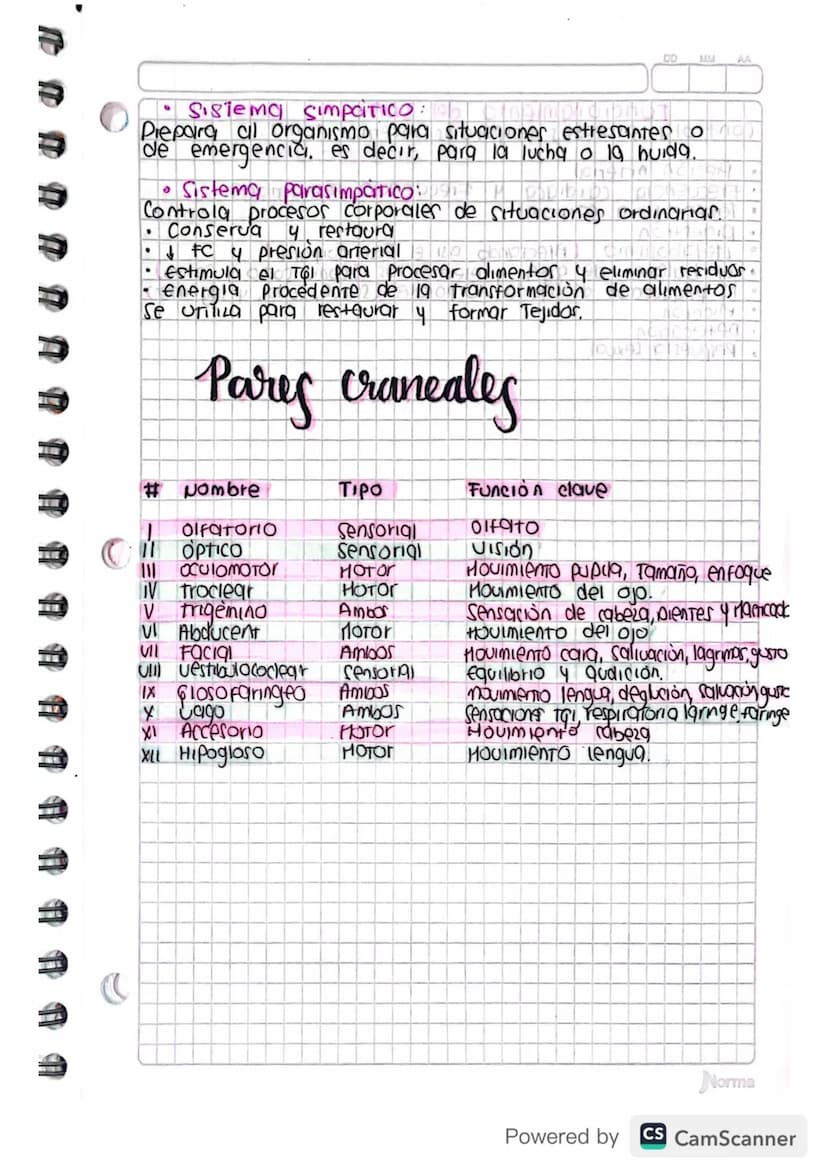 DD MM AA
• Sistema simpático:
Prepara al organismo para situaciones estresantes o
de emergencia. es decir, para la lucha o la huida.
• Sistema parasimpático:
Controla procesos corporales de situaciones ordinarias.
• Conserva y restaura
• ↓ FC y presión arterial
• Estimula el TGI para procesar alimentos y eliminar residuos.
• Energía procedente de la transformación de alimentos
se utiliza para restaurar y formar Tejidos.
Pares craneales
# Nombre Tipo Función clave
I Olfatorio Sensorial Olfato
II óptico Sensorial Visión
III oculomotor Motor Movimiento pupila, Tamaño, enfoque
IV troclear Motor Movimiento del ojo.
V trigémino Ambos Sensación de cabeza, Dientes y
VI Abducent Motor Movimiento del ojo
VII Facial Ambos Movimiento cara, salivación, lagrimas, gusto
VIII Vestibulococlear Sensorial equilibrio y audición.
IX Glosofaringeo Ambos movimiento lengua, deglución, salivación, gusto
X Vago Ambos Sensacions TGI, respiratoria laringe, faringe
XI Accesorio Motor Movimiento cabeza
XII Hipogloso Motor Movimiento lengua.
Norma
Powered by CS CamScanner